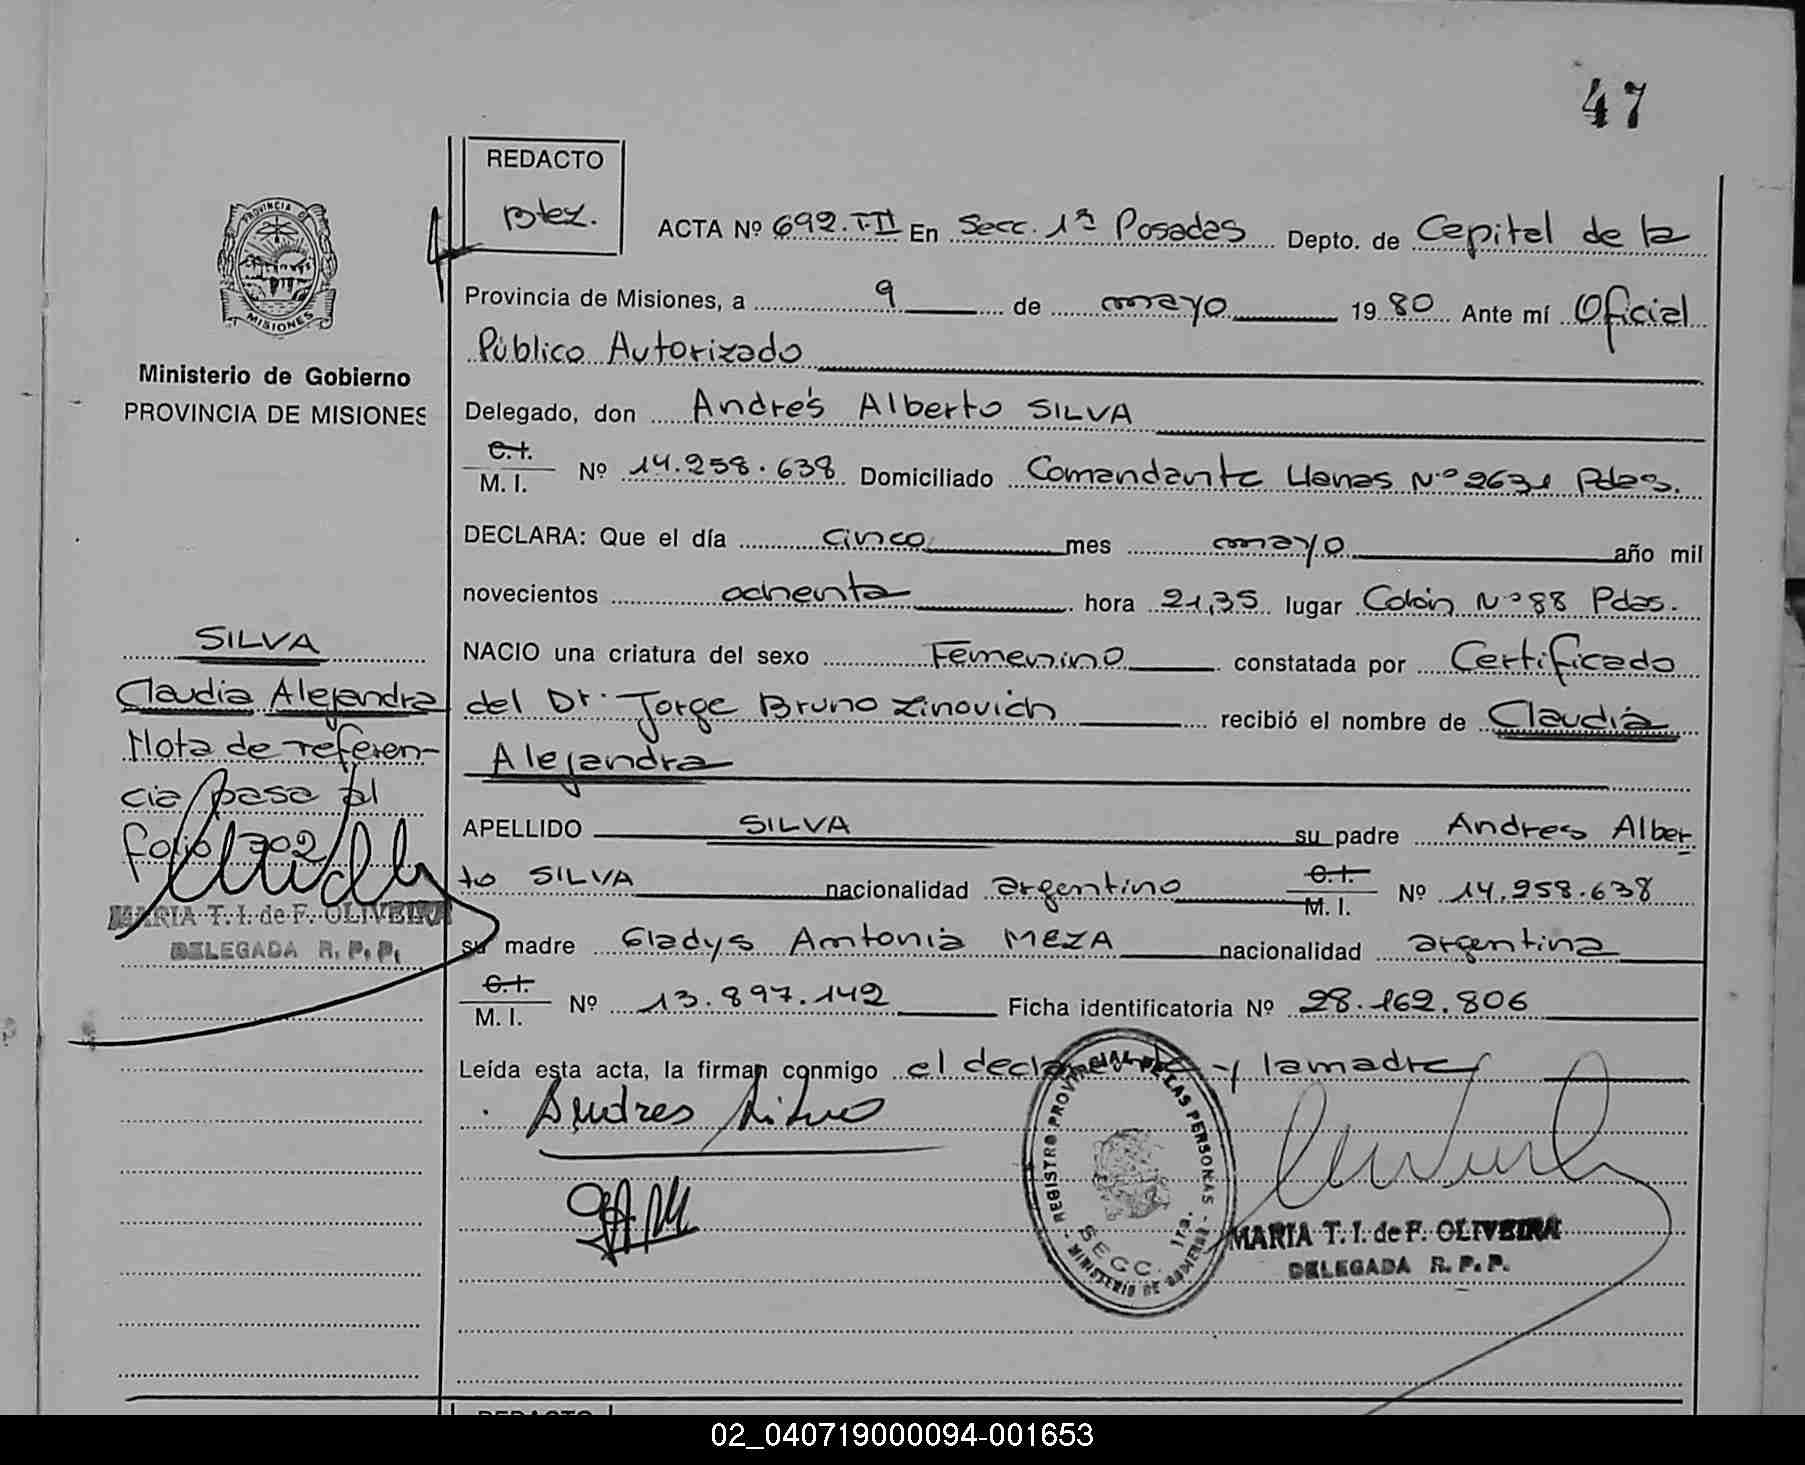 47
REDACTO
Btez.
ACTA Nº 692.T-II En Secc. 1ª Posadas Depto. de Capital de la
Provincia de Misiones, a 9 de mayo 1980 Ante mí Oficial
Público Autorizado
Delegado, don Andrés Alberto SILVA
C.I.
M. I. Nº 14.258.638 Domiciliado Comandante Llanas Nº 2631 Pdas.
DECLARA: Que el día cinco mes mayo año mil
novecientos ochenta hora 21,35 lugar Colón Nº 88 Pdas.
NACIO una criatura del sexo Femenino constatada por Certificado
del Dr. Jorge Bruno Zinovich recibió el nombre de Claudia
Alejandra
APELLIDO SILVA su padre Andres Alber
to SILVA nacionalidad argentino C.I.
M. I. Nº 14.258.638
su madre Gladys Antonia MEZA nacionalidad argentina
C.I.
M. I. Nº 13.897.142 Ficha identificatoria Nº 28.162.806
Leída esta acta, la firman conmigo el declarante y la madre
Andres Silva
REGISTRO PROVINCIAL DE LAS PERSONAS
SECC. 1ra.
MINISTERIO DE GOBIERNO
MARIA T. I. de F. OLIVEIRA
DELEGADA R. P. P.
PROVINCIA DE
MISIONES
Ministerio de Gobierno
PROVINCIA DE MISIONES
SILVA
Claudia Alejandra
Nota de referen-
cia pasa al
folio 702
MARIA T. I. de F. OLIVEIRA
DELEGADA R. P. P.
REDACTO
02_040719000094-001653